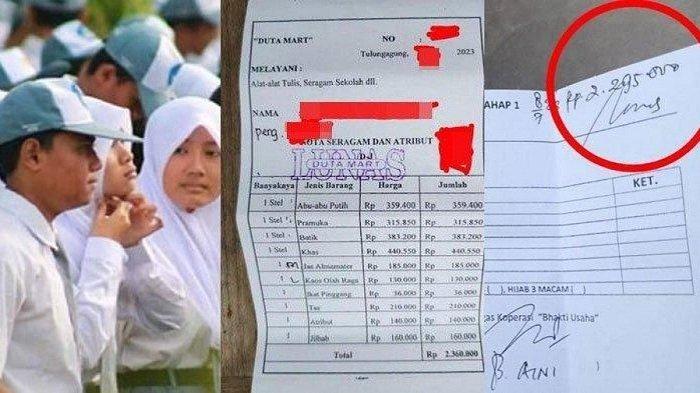 "DUTA MART"
NO :
Tulungagung, 2023
MELAYANI :
Alat-alat Tulis, Seragam Sekolah dll.
NAMA
peng.
NOTA SERAGAM DAN ATRIBUT
LUNAS
DUTA MART
Banyaknya Jenis Barang Harga Jumlah
1 Stel Abu-abu Putih Rp 359.400 Rp 359.400
1 Stel Pramuka Rp 315.850 Rp 315.850
1 Stel Batik Rp 383.200 Rp 383.200
1 Stel Khas Rp 440.550 Rp 440.550
1 M Jas Almamater Rp 185.000 Rp 185.000
1 L Kaos Olah Raga Rp 130.000 Rp 130.000
1 Ikat Pinggang Rp 36.000 Rp 36.000
1 Tas Rp 210.000 Rp 210.000
1 Atribut Rp 140.000 Rp 140.000
1 Jilbab Rp 160.000 Rp 160.000
Total Rp 2.360.000
AHAP 1
8/9 Rp 2.295.000
KET.
), HIJAB 3 MACAM (
gas Koperasi "Bhakti Usaha"
B. AINI